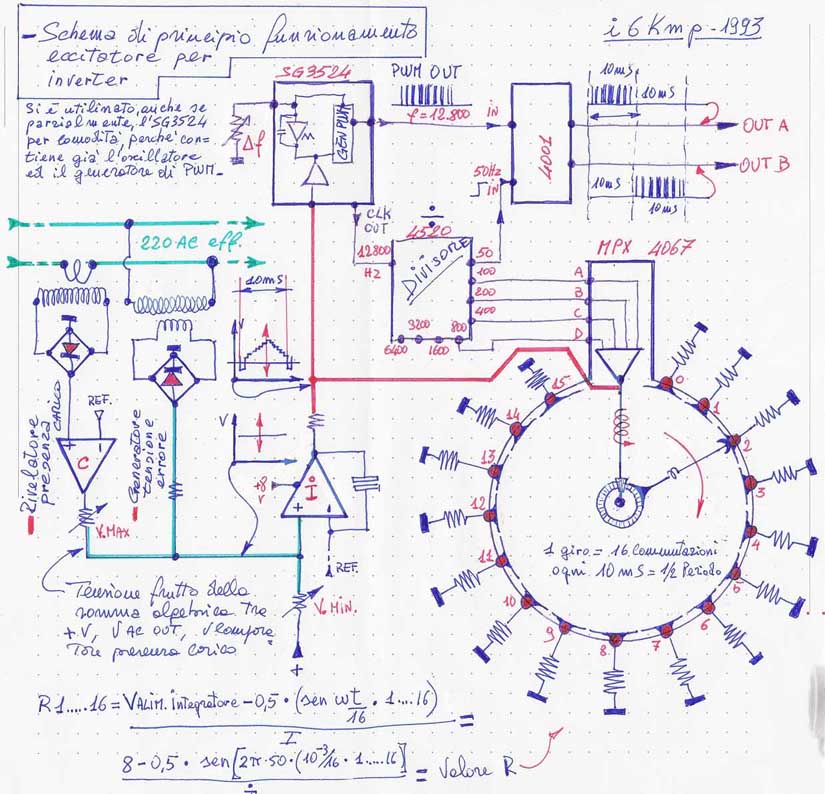 - Schema di principio funzionamento
eccitatore per
inverter
i6Kmp-1993
Si è utilizzato, anche se
parzialmente, l'SG3524
per comodità, perchè con=
tiene già l'oscillatore
ed il generatore di PWM-
SG3524
GEN PWM
Δf
PWM OUT
f=12.800
iN
4001
10mS
10mS
OUT A
OUT B
10mS
10mS
50Hz
iN
CLK
OUT
÷
4520
12800
Hz
DiVISORE
50
100
200
400
800
6400
3200
1600
MPX 4067
A
B
C
D
220 AC eff.
10mS
V
V
CARICO
REF.
C
Rivelatore
presenza
Generatore
tensione
errore
V.MAX
+8
V
+
REF.
V.MIN.
+
Tensione frutto della
somma algebrica tra
+V, V AC OUT, V Compara=
Tore presenza carico
0
1
2
3
4
5
6
7
8
9
10
11
12
13
14
15
1 giro = 16 Commutazioni
ogni 10mS = 1/2 Periodo
R1.....16 = VALIM. integratore - 0,5 • (sen ωt/16 • 1....16) / I =
8 - 0,5 • sen[2π•50•(10⁻³/16 • 1.....16] / i = Valore R